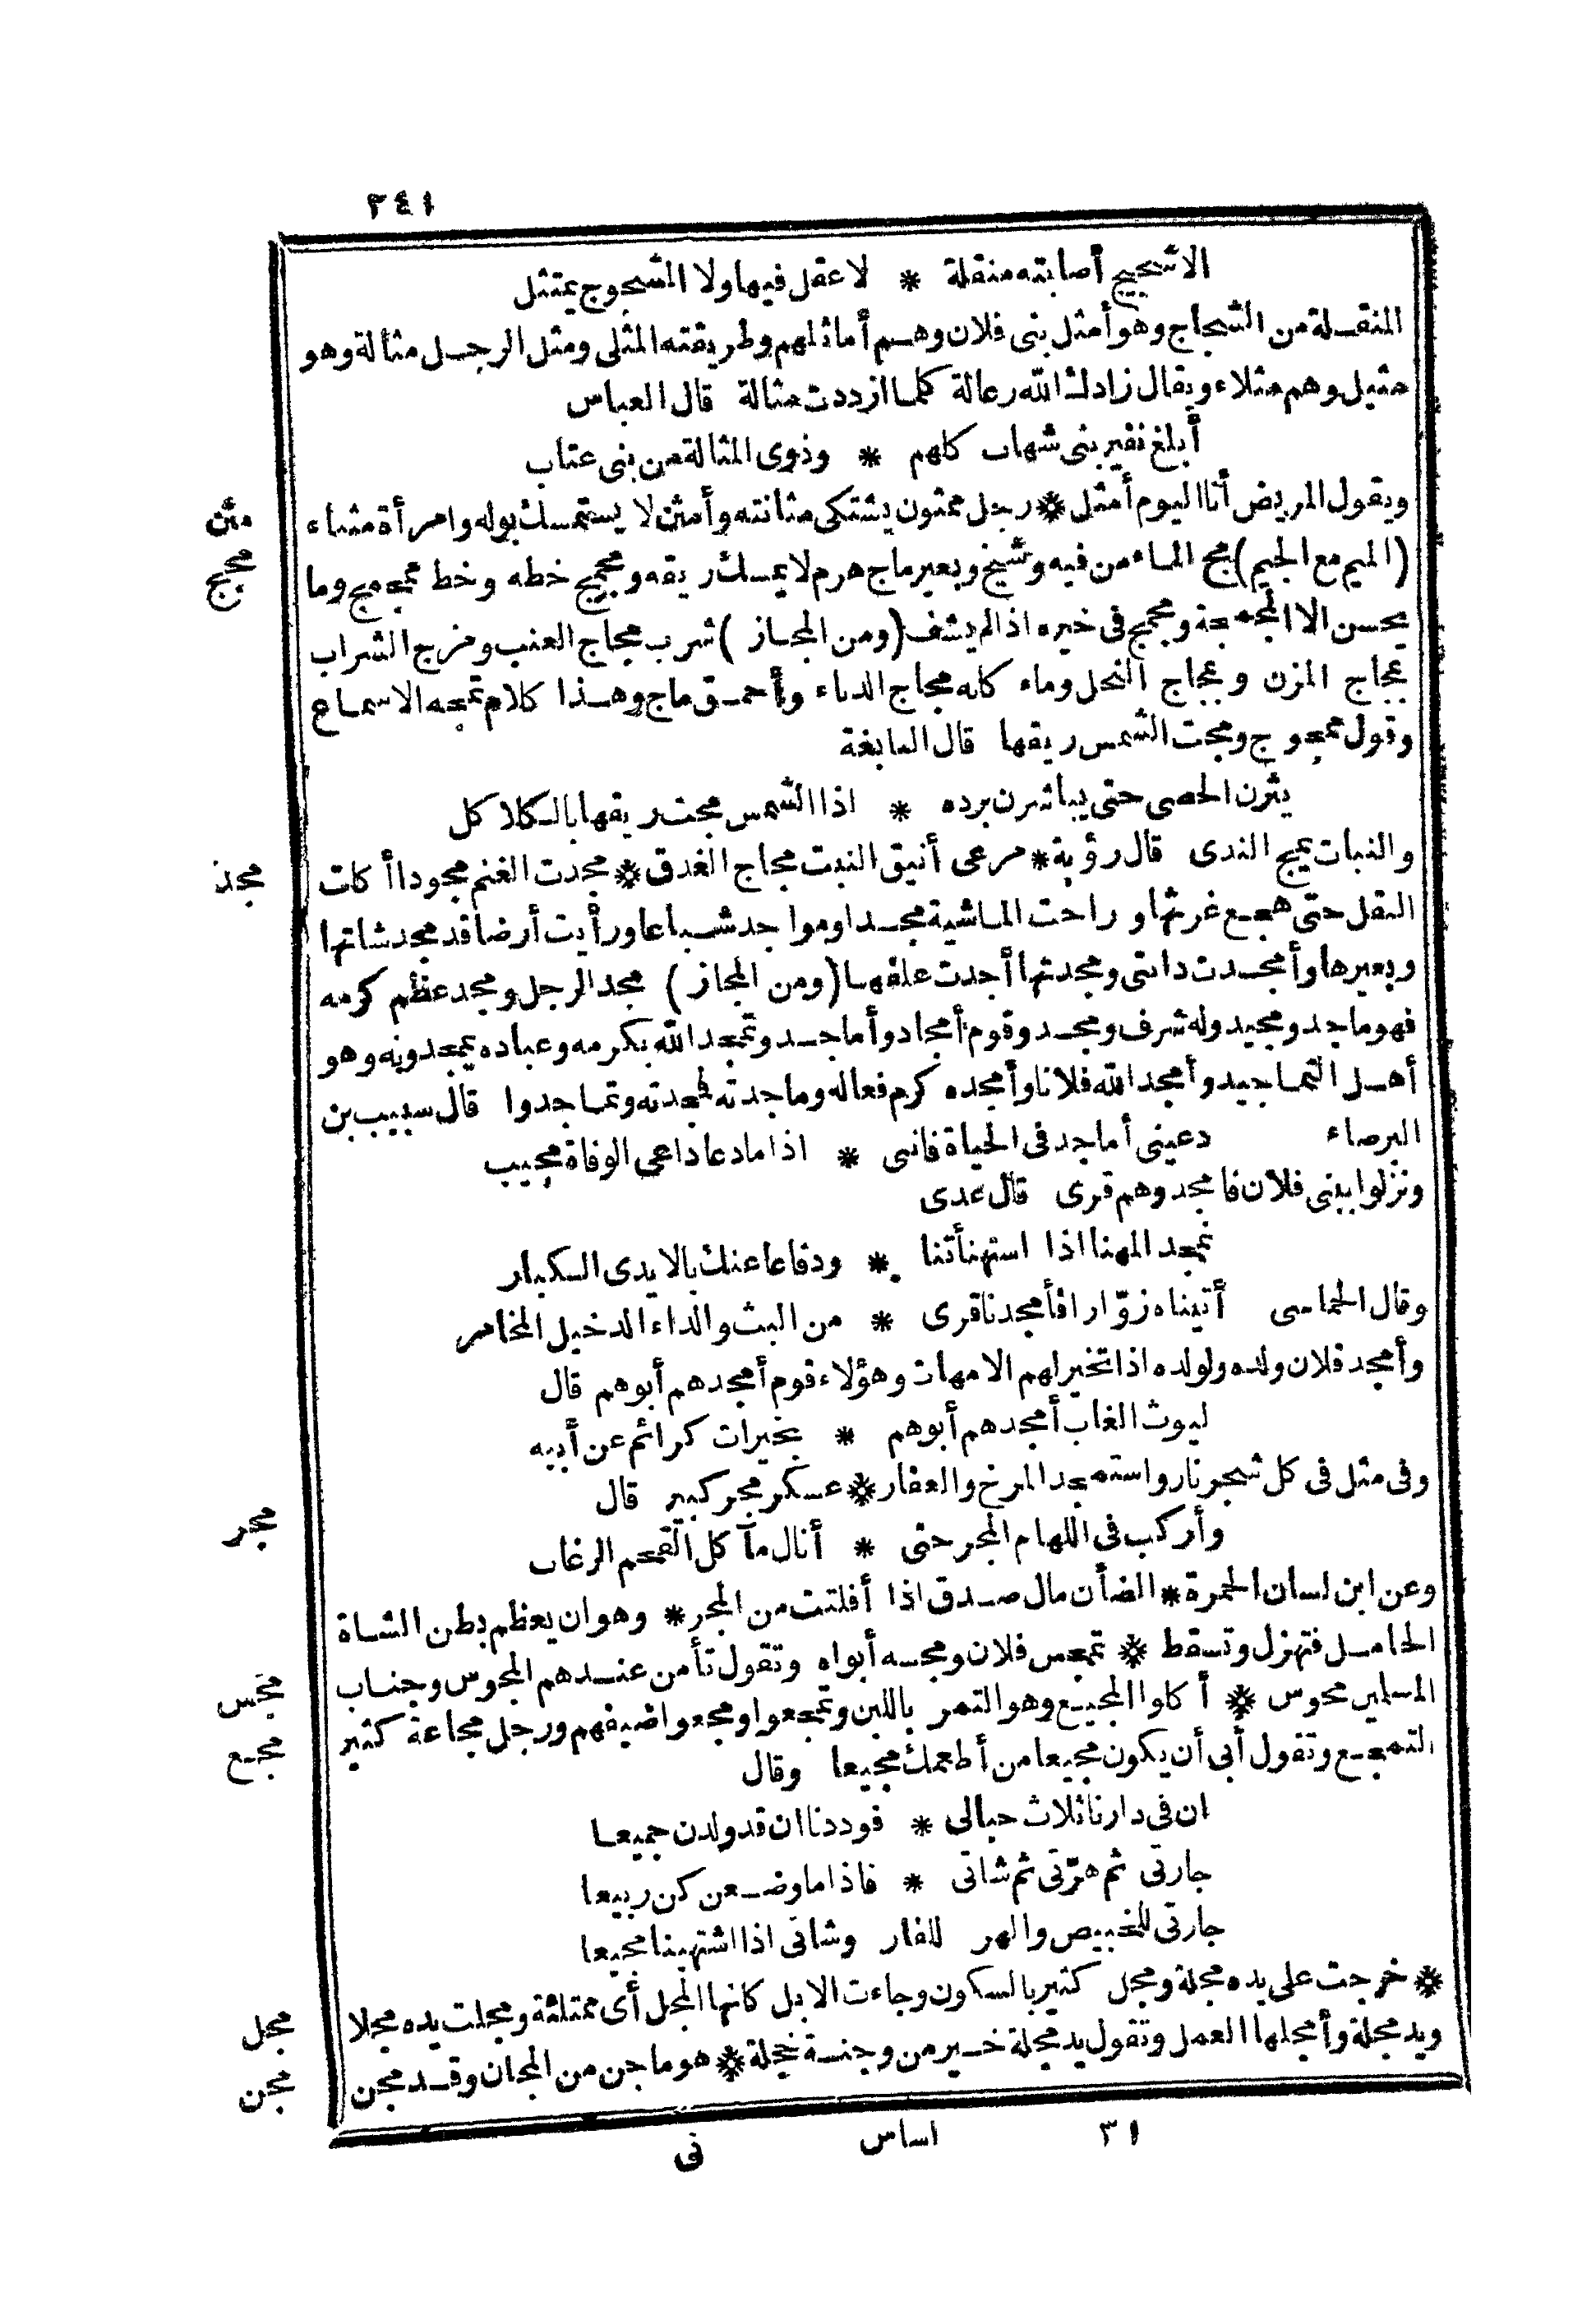 ٢٤١
الا شجيج أصابته منقلة * لا عقل فيها ولا المشجوج يمتثل
المنقلة من الشجاج وهو أمثل بني فلان وهم أماثلهم وطريقته المثلى ومثل الرجل مثالة وهو
مثيل وهم مثلاء ويقال زادك الله رعالة كلما ازددت مثالة قال العباس
أبلغ نفير بنى شهاب كلهم * وذوى المثالة من بنى عتاب
ويقول المريض أنا اليوم أمثل * رجل ممثون يشتكى مثانته وأمثن لا يستمسك بوله وامرأة مثناء
مثن
(الميم مع الجيم) مج الماء من فيه وشيخ وبعير ماج هرم لا يمسك ريقه ومجمج خطه وخط ممجمج وما
مجج
يحسن الا المجمجة ومجمج فى خبره اذا لم يشف (ومن المجاز) شرب مجاج العنب ومزج الشراب
بمجاج المزن وبمجاج النحل وماء كانه مجاج الدباء وأحمق ماج وهذا كلام تمجه الاسماع
وقول ممجوج ومجت الشمس ريقها قال النابغة
يثرن الحصى حتى يباشرن برده * اذا الشمس مجت ريقها بالكلاكل
والنبات يمج الندى قال رؤبة * مرعى أنيق النبت مجاج الغدق * مجدت الغنم مجودا أكلت
مجد
البقل حتى هجع غرثها وراحت الماشية مجدا ومواجد شباعا ورأيت أرضا قد مجد شاتها
وبعيرها وأمجدت دابتى ومجدتها أجدت علفها (ومن المجاز) مجد الرجل ومجد عظم كرمه
فهو ماجد ومجيد وله شرف ومجد وقوم أمجاد وأماجد وتمجد الله بكرمه وعباده يمجدونه وهو
أهل التماجيد وأمجد الله فلانا وأمجده كرم فعاله وماجدته فمجدته وتماجدوا قال سبيب بن
البرصاء دعينى أماجد فى الحياة فاننى * اذا ما دعا داعى الوفاة مجيب
ونزلوا ببنى فلان فامجدوهم قرى قال عدى
تمجد المهنا اذا استهنأتنا * ودفاعا عنك بالايدى الكبار
وقال الحماسى أتيناه زوّارا فأمجدنا قرى * من البث والداء الدخيل المخامر
وأمجد فلان ولده ولولده اذا تخير لهم الامهات وهؤلاء قوم أمجدهم أبوهم قال
ليوث الغاب أمجدهم أبوهم * بخيرات كرائم عن أبيه
وفى مثل فى كل شجر نار واستمجد المرخ والعفار * عسكر مجر كبير قال
مجر
وأركب فى اللهام المجر حتى * أنال مآكل القحم الرغاب
وعن ابن لسان الحمرة * الضأن مال صدق اذا أفلتت من المجر * وهو ان يعظم بطن الشاة
الحامل فتهزل وتسقط * تمجس فلان ومجسه أبواه وتقول تأمن عندهم المجوس وجناب
مجس
المسلمين محوس * أكلوا المجيع وهو التمر باللبن وتمجعوا ومجعوا ضيفهم ورجل مجاعة كثير
مجع
التمجع وتقول أبى أن يكون مجيعا من أطعمك مجيعا وقال
ان فى دارنا ثلاث حبالى * فوددنا ان قد ولدن جميعا
جارتى ثم هرّتى ثم شاتى * فاذا ما وضعن كن ربيعا
جارتى للخبيص والهر للفار وشاتى اذا اشتهينا مجيعا
* خرجت على يده مجلة ومجل كثير بالسكون وجاءت الابل كانها المجل أى ممتلئة ومجلت يده مجلا
مجل
ويد مجلة وأمجلها العمل وتقول يد مجلة خير من وجنة خجلة * هو ماجن من المجان وقد مجن
مجن
٣١ اساس نى